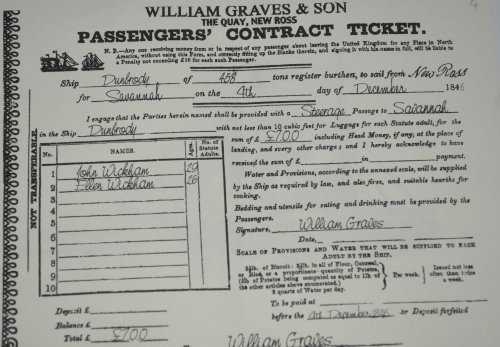 4
WILLIAM GRAVES & SON
THE QUAY, NEW ROSS
PASSENGERS' CONTRACT TICKET.
N.B.—Any one receiving money from or in respect of any passenger about leaving the United Kingdom for any Place in North
America, without using this Form, and correctly filling up the Blanks therein, and signing it with his name in full, will be liable to
a Penalty not exceeding £10 for each such Passenger.
Ship Dunbrody of 458 tons register burthen, to sail from New Ross
for Savannah on the 4th day of December 1846
I engage that the Parties herein named shall be provided with a Steerage Passage to Savannah
in the Ship Dunbrody with not less than 10 cubic feet for Luggage for each Statute adult, for the
NOT TRANSFERABLE
No. NAMES. Ages. No. of Statute Adults.
1 John Wickham 29
2 Ellen Wickham 26
3
4
5
6
7
8
9
10
sum of £ 7.0.0 including Head Money, if any, at the place of
landing, and every other charge; and I hereby acknowledge to have
received the sum of £ in payment.
Water and Provisions, according to the annexed scale, will be supplied
by the Ship as required by law, and also fires, and suitable hearths for
cooking.
Bedding and utensils for eating and drinking must be provided by the
Passengers.
Signature, William Graves
Date,
SCALE OF PROVISIONS AND WATER THAT WILL BE SUPPLIED TO EACH
ADULT BY THE SHIP.
2½lb. of Biscuit: 5lb. in all of Flour, Oatmeal,
or Rice, or a proportionate quantity of Potatoes,
(5lb. of Potatoes being computed as equal to 1lb. of
the other articles above enumerated.)
3 quarts of Water per day.
Per week.
Issued not less often than twice a week.
Deposit £
Balance £
Total £ 7.0.0
To be paid at
before the 4th December 1846 or Deposit forfeited
William Graves